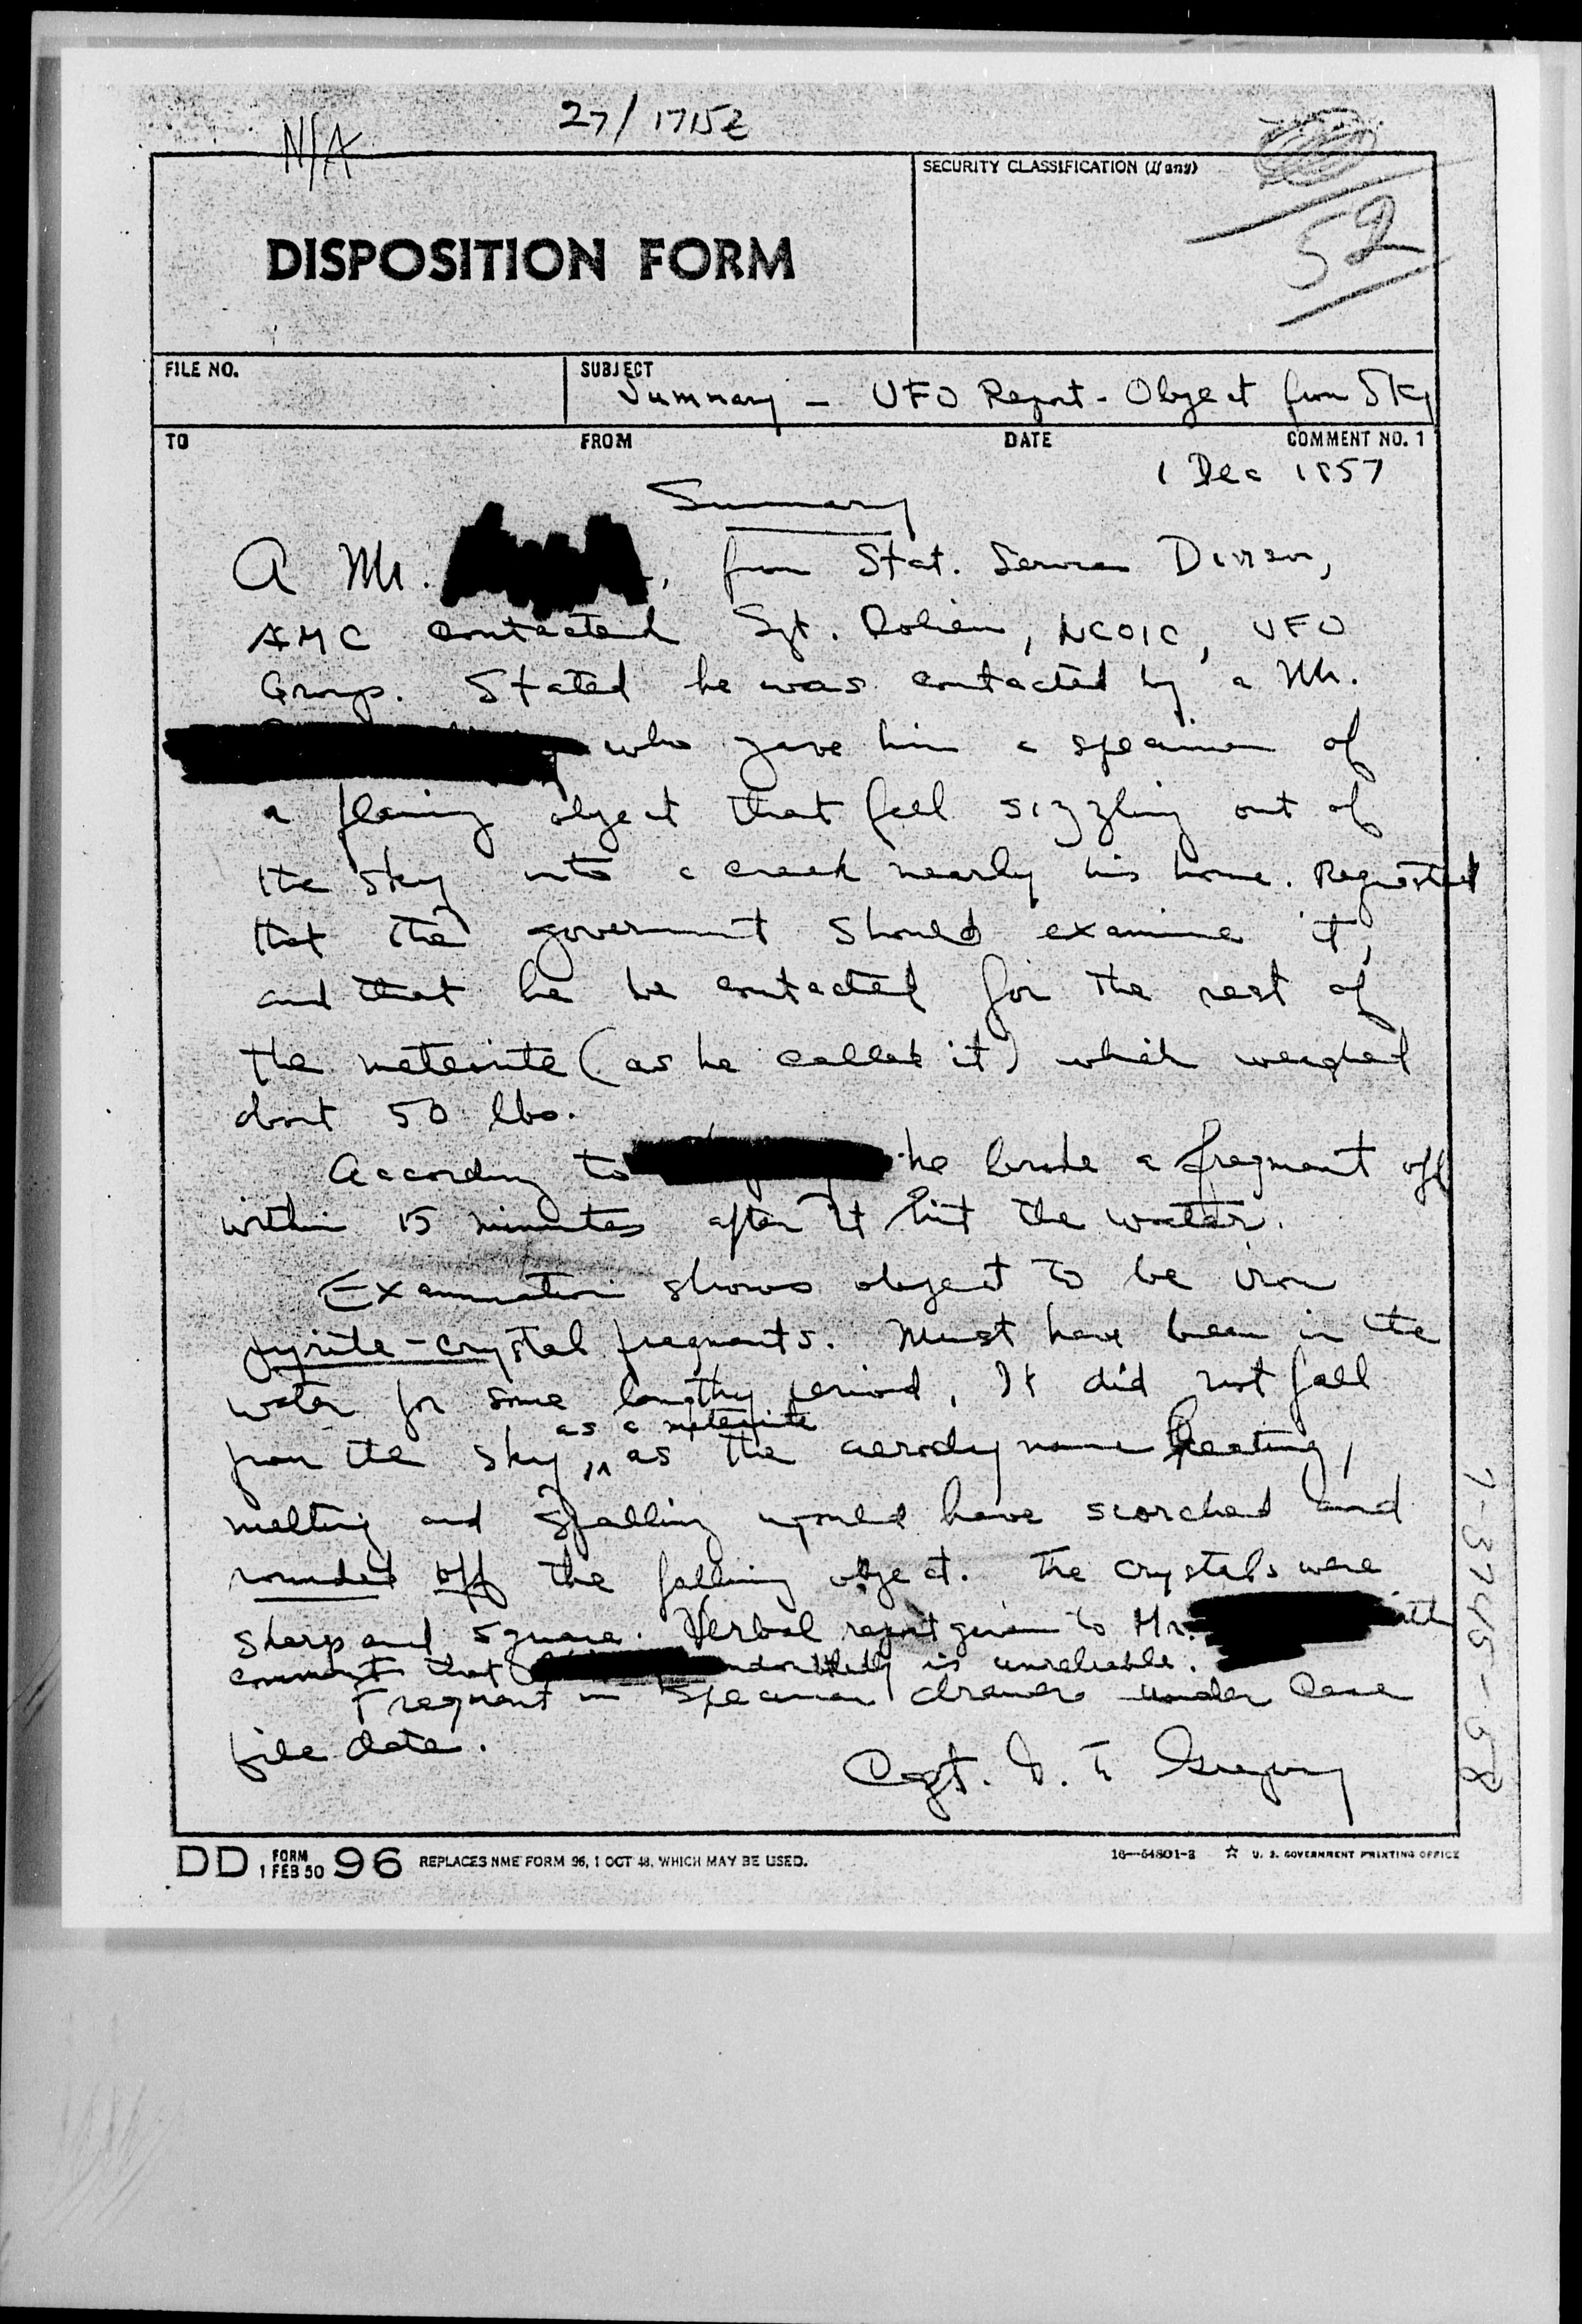 27/1715Z
N/A
SECURITY CLASSIFICATION (If any)
52
DISPOSITION FORM
FILE NO.
SUBJECT
Summary - UFO Report - Object from Sky
TO FROM DATE COMMENT NO. 1
1 Dec 1957
Summary
A Mr. , from Stat. Services Division,
AMC contacted Sgt. , NCOIC, UFO
Group. Stated he was contacted by a Mr.
who gave him a specimen of
a flaming object that fell sizzling out of
the sky into a creek nearly his home. Requested
that the government should examine it,
and that he be contacted for the rest of
the meteorite (as he called it) which weighed
about 50 lbs.
According to he broke a fragment off
within 15 minutes after it hit the water.
Examination shows object to be iron
pyrite-crystal fragments. Must have been in the
water for some lengthy period, It did not fall
as a meteorite
from the sky, as the aerodynamic heating,
melting and spalling would have scorched and
rounded off the falling object. The crystals were
sharp and square. Verbal report given to Mr.
comment that undoubtedly is unreliable.
Fragment in specimen drawer under case
file date.
Capt. G. T. Gregory
7-3745-58
DD FORM 1 FEB 50 96 REPLACES NME FORM 96, 1 OCT 48, WHICH MAY BE USED.
16—54801-3 ☆ U. S. GOVERNMENT PRINTING OFFICE